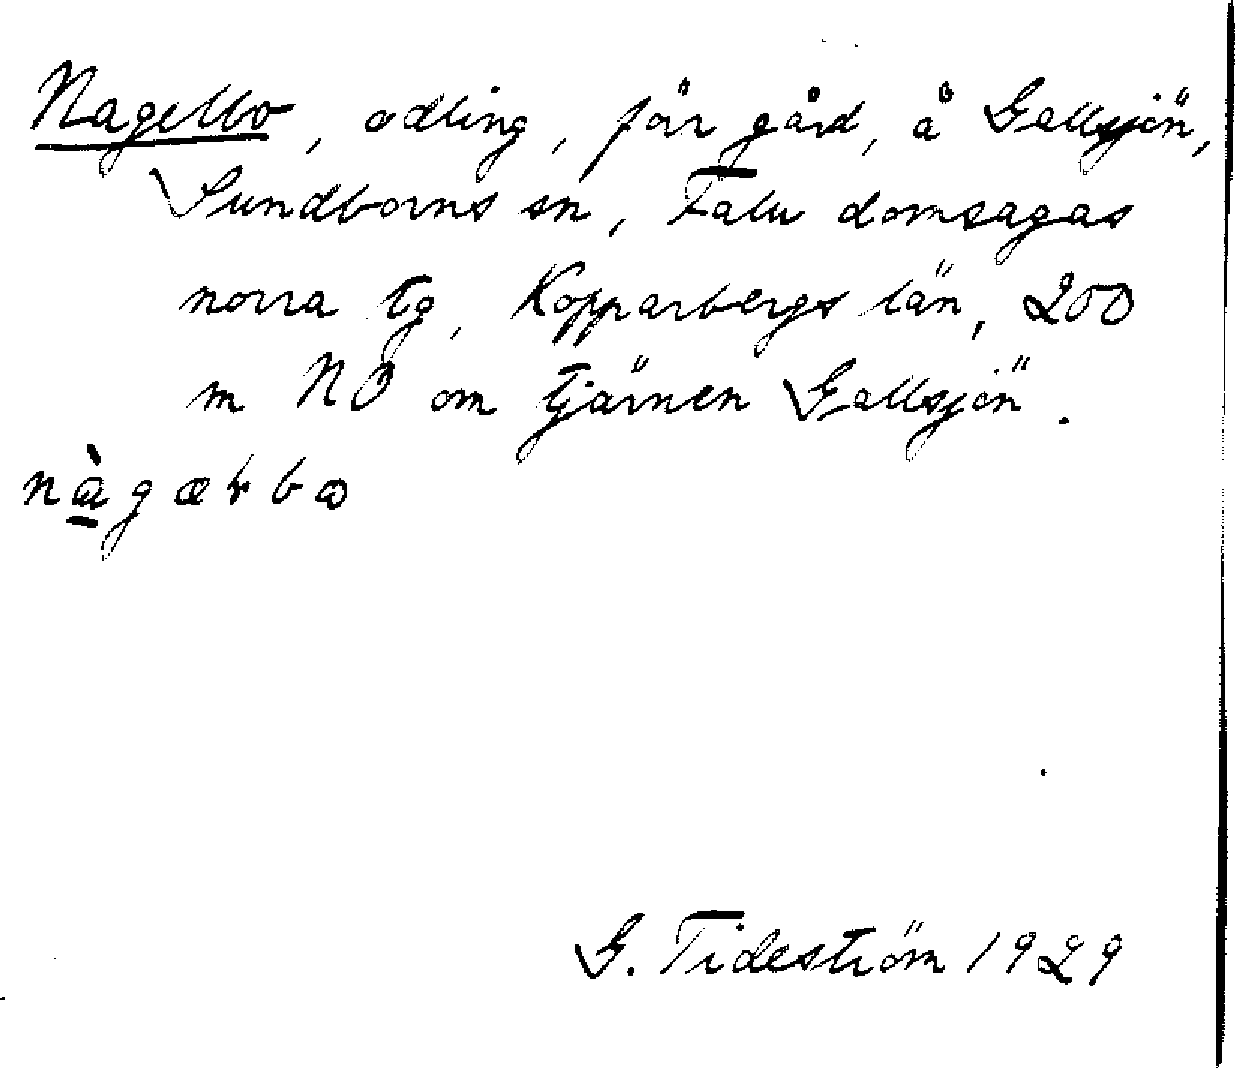 Nagelbo, odling, förr gård, å Gallsjön,
Sundborns sn, Falu domsagas
norra tg, Kopparbergs län, 200
m NO om tjärnen Gallsjön.
G. Tideström 1929